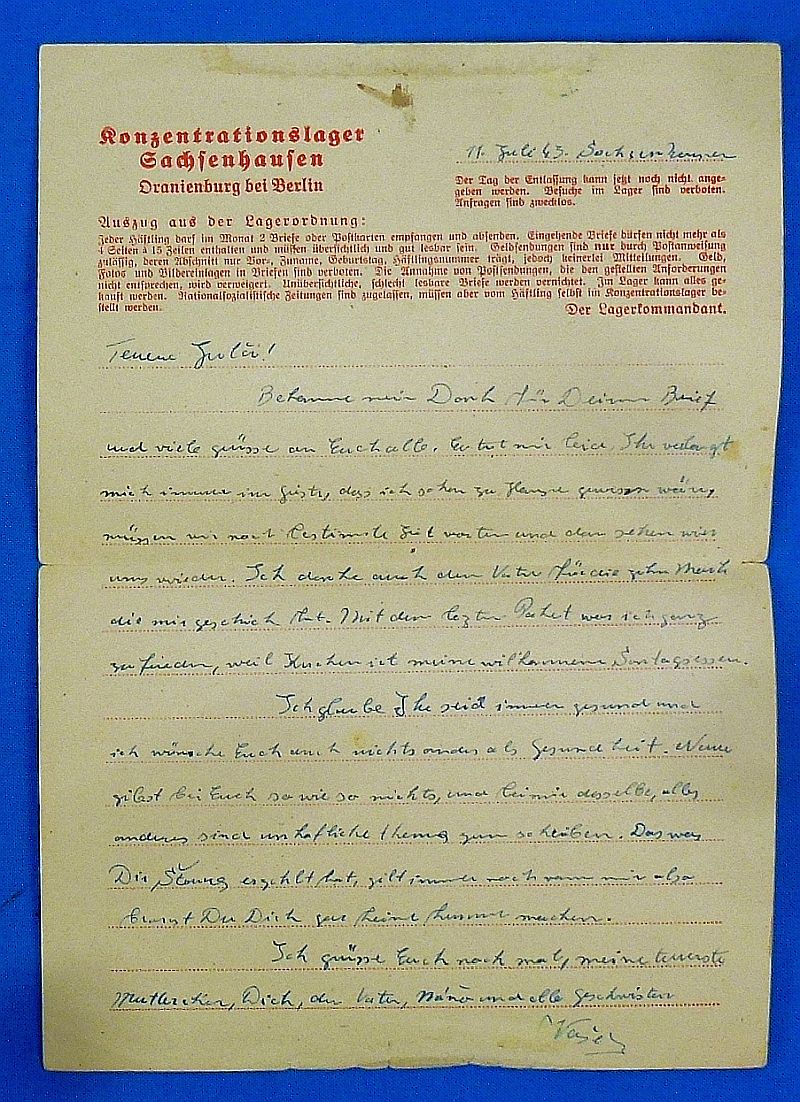 Konzentrationslager
Sachsenhausen
Oranienburg bei Berlin
11. Juli 43. Sachsenhausen
Der Tag der Entlassung kann jetzt noch nicht ange-
geben werden. Besuche im Lager sind verboten.
Anfragen sind zwecklos.
Auszug aus der Lagerordnung:
Jeder Häftling darf im Monat 2 Briefe oder Postkarten empfangen und absenden. Eingehende Briefe dürfen nicht mehr als
4 Seiten à 15 Zeilen enthalten und müssen übersichtlich und gut lesbar sein. Geldsendungen sind nur durch Postanweisung
zulässig, deren Abschnitt nur Vor-, Zuname, Geburtstag, Häftlingsnummer trägt, jedoch keinerlei Mitteilungen. Geld,
Fotos und Bildereinlagen in Briefen sind verboten. Die Annahme von Postsendungen, die den gestellten Anforderungen
nicht entsprechen, wird verweigert. Unübersichtliche, schlecht lesbare Briefe werden vernichtet. Im Lager kann alles ge-
kauft werden. Nationalsozialistische Zeitungen sind zugelassen, müssen aber vom Häftling selbst im Konzentrationslager be-
stellt werden.
Der Lagerkommandant.
Teuere
mein Dank für Deinen Brief
und viele grüsse an Euch alle. Es tut mir leid, Ihr verlangt
mich immer im das ich schon zu Hause gewesen wäre,
müssen wir noch bestimmte Zeit warten und dan sehen wir
uns wieder. Ich danke auch dem Vater für die zehn Mark
die mir geschick hat. Mit dem lezten Paket war ich ganz
zufrieden, weil Kuchen ist meine wilkommene Sontagsessen.
Ich glaube Ihr seid immer gesund und
ich wünsche Euch auch nichts anders als Gesundheit. Neue
gibst bei Euch so wie so nichts, und bei mir dasselbe, alles
anderes sind thema zum schreiben. Das was
Dir erzehlt hat, gilt immer noch mir also
Du Dich gar keine machen.
Ich grüsse Euch noch mal, meine teuerste
Mutterchen, Dich, den Vater, und alle geschwister